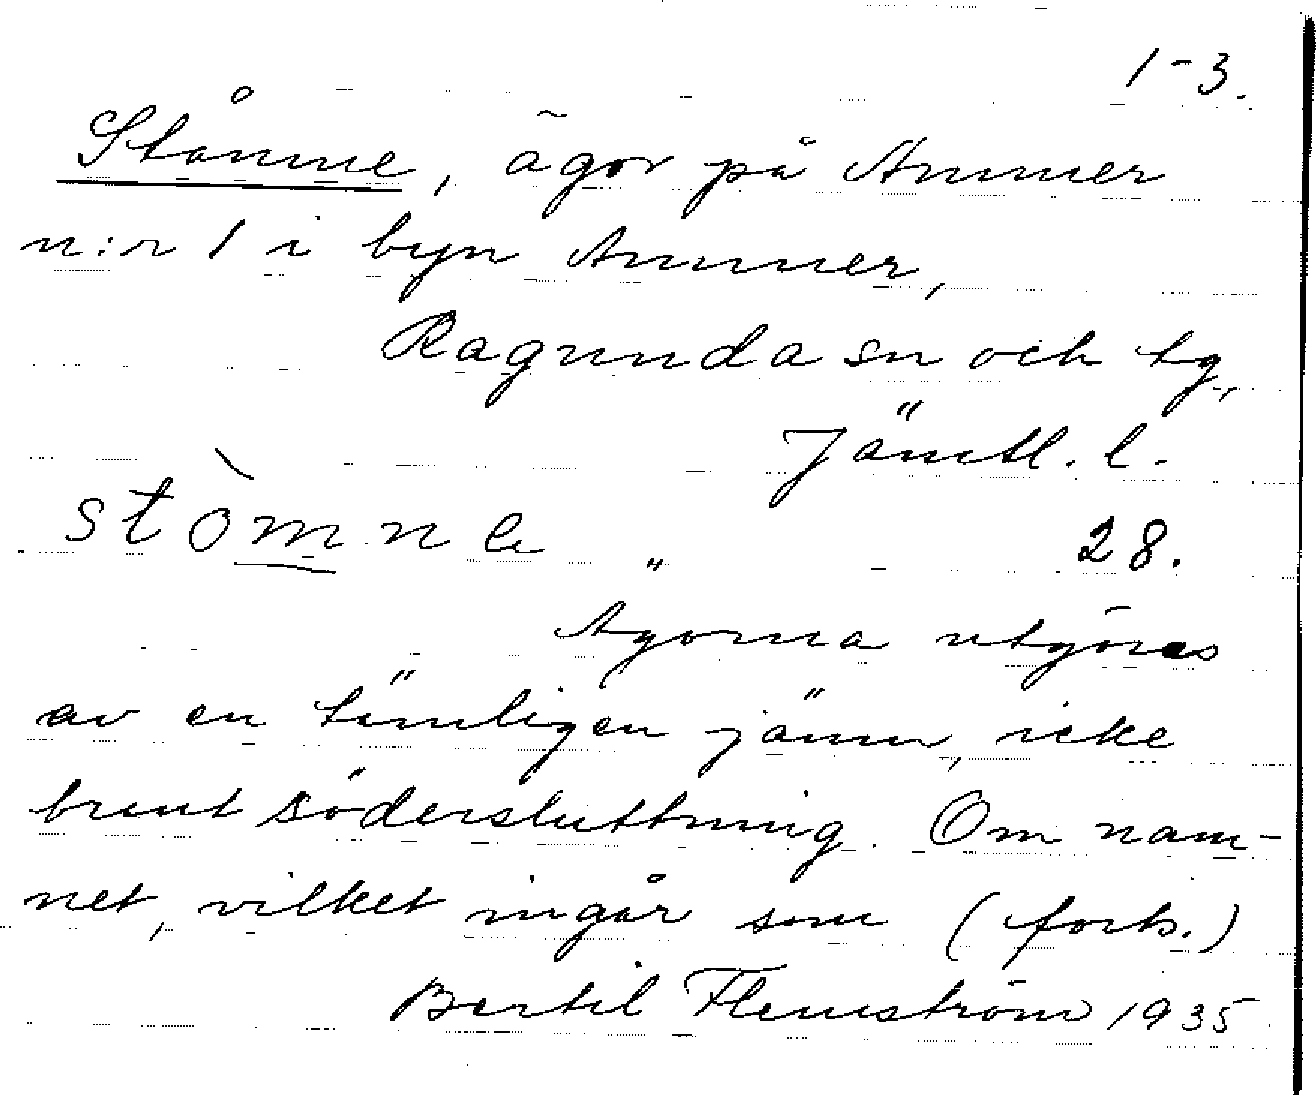 1-3.
Stånne, ägor på Ammer
n:r 1 i byn Ammer,
Ragunda sn och tg,
Jämtl. l.
stòmne " 28.
Ägorna utgöras
av en tämligen jämn, icke
brant södersluttning. Om nam-
net, vilket ingår som (forts.)
Bertil Flemström 1935